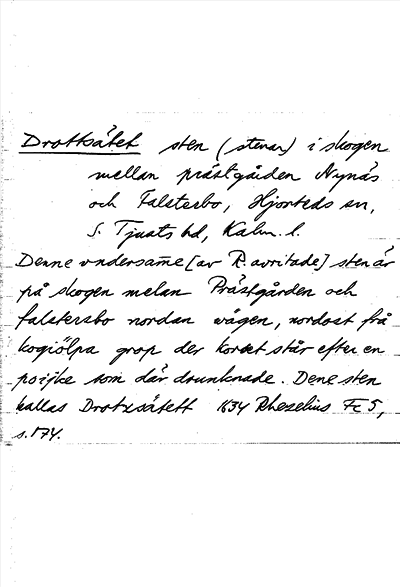 Drottsätet sten (stenar) i skogen
mellan prästgården Nynäs
och Falsterbo, Hjorteds sn,
S. Tjusts hd, Kalm. l.
Denne vndersame [av R. avritade] sten är
på skogen melan Prästgården och
falstersbo nordan wägen, nordost frå
kogiölpa grop der korset står efter en
poijke som där drunknade. Dene sten
kallas Drotzsätett 1634 Rhezelius Fc 5,
s. 174.